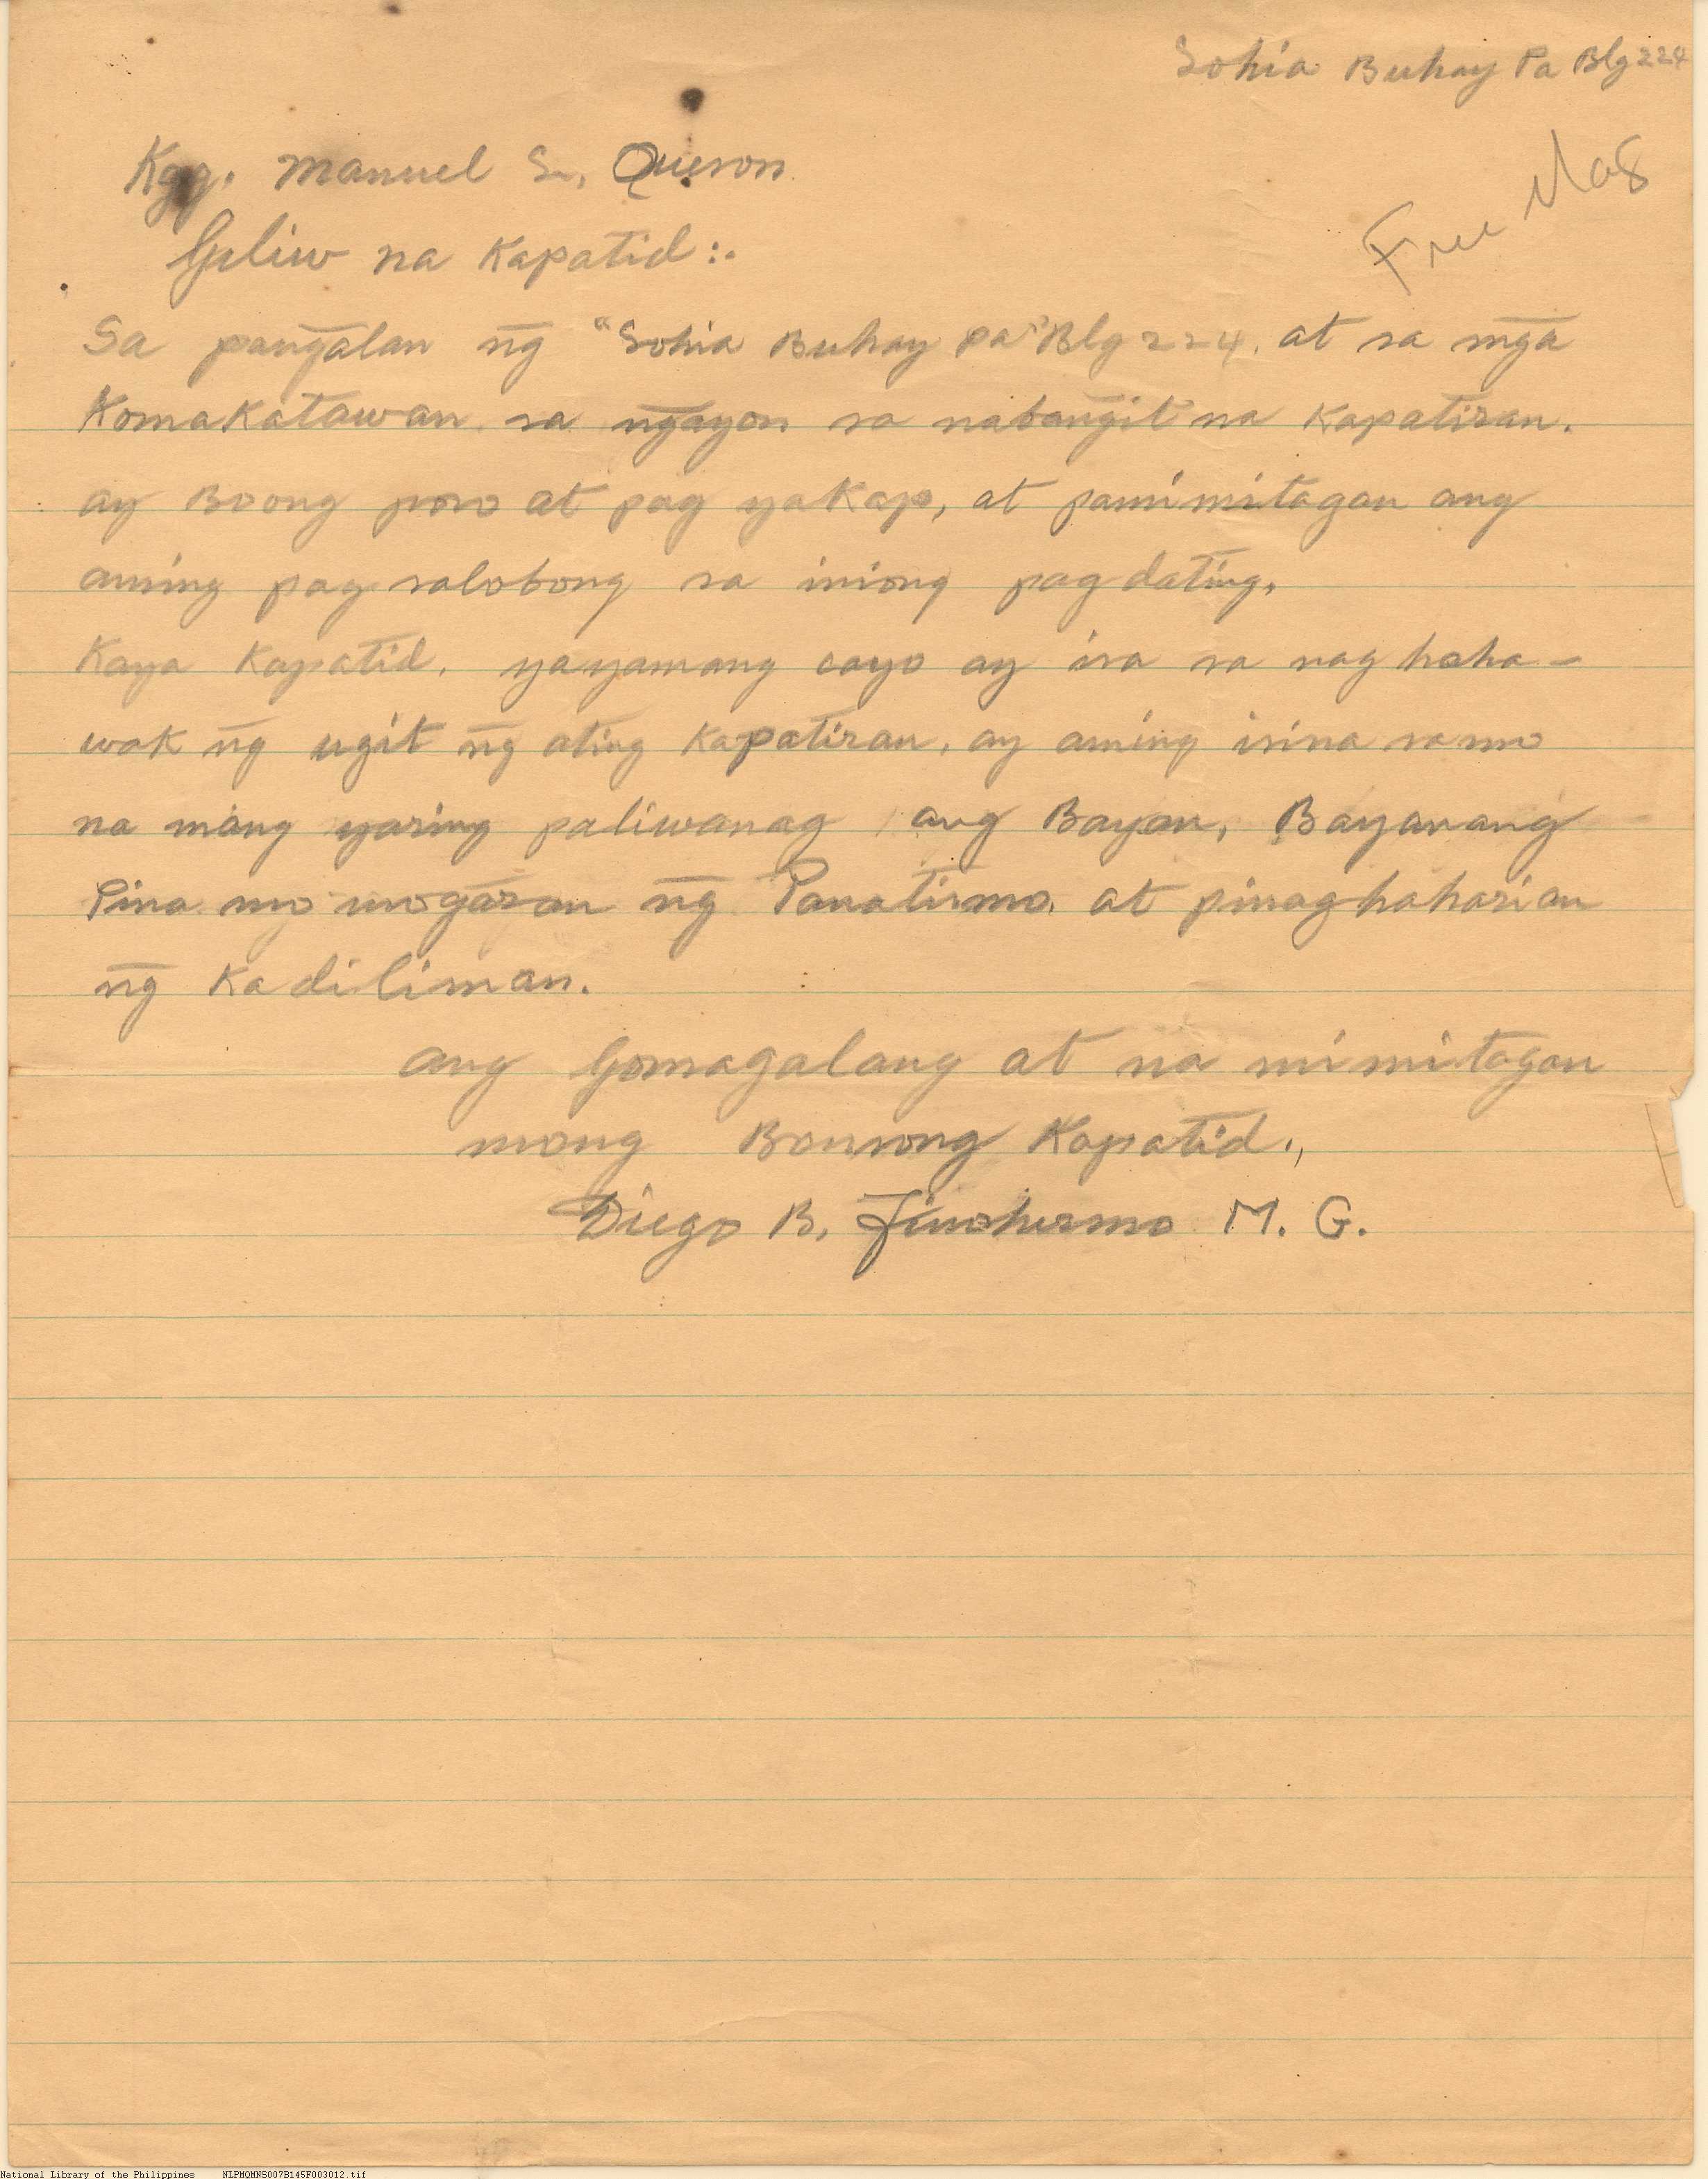 Sohia Buhay Pa Blg 224
Free Mas
Kgg. Manuel L. Queson.
Giliw na Kapatid:.
Sa pangalan ng̃ "Sohia Buhay pa" Blg 224. at sa mg̃a
Komakatawan sa ng̃ayon sa nabang̃it na Kapatiran.
ay Boong poso at pag yakap, at pamimitagan ang
aming pag salobong sa iniong pag dating.
Kaya Kapatid. yayamang cayo ay isa sa nag haha-
wak ng̃ ugit ng̃ ating Kapatiran, ay aming isina samo
na mang yaring paliwanag ang Bayan, Bayanang
Pina mo mogaran ng̃ Panatismo. at pinaghaharian
ng̃ Kadiliman.
ang Gomagalang at na mimitagan
mong Bonsong Kapatid.,
Diego B. Jinohermo M. G.
National Library of the Philippines NLPMQMNS007B145F003012.tif